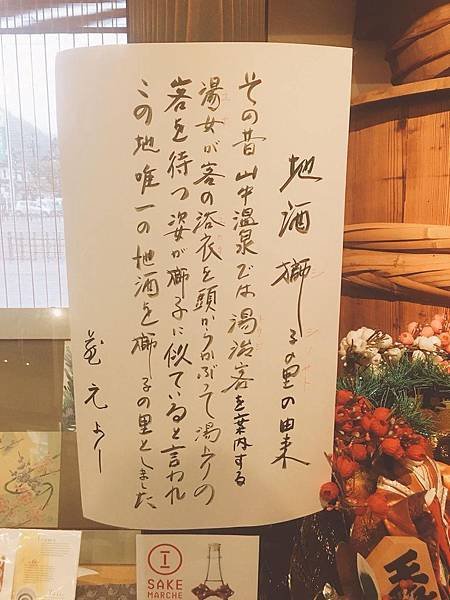 地酒獅子の里の由来
その昔山中温泉では湯治客を案内する
湯女が客の浴衣を頭からかぶって湯上りの
客を待つ姿が獅子に似ていると言われ
この地唯一の地酒を獅子の里としました
蔵元より
SAKE
MARCHE